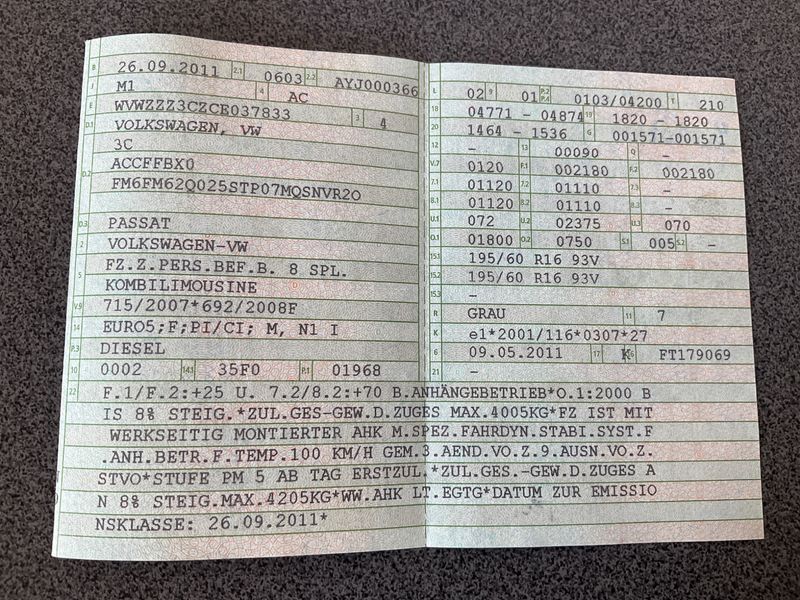 B 26.09.2011 2.1 0603 2.2 AYJ000366
J M1 4 AC
E WVWZZZ3CZCE037833 3 4
D.1 VOLKSWAGEN, VW
3C
D.2 ACCFFBX0
FM6FM62Q025STP07MQSNVR2O
D.3 PASSAT
2 VOLKSWAGEN-VW
5 FZ.Z.PERS.BEF.B. 8 SPL.
KOMBILIMOUSINE
V.9 715/2007*692/2008F
14 EURO5;F;PI/CI; M, N1 I
P.3 DIESEL
10 0002 14.1 35F0 P.1 01968
L 02 9 01 P.2 P.4 0103/04200 T 210
18 04771 - 04874 19 1820 - 1820
20 1464 - 1536 G 001571-001571
12 - 13 00090 Q -
V.7 0120 F.1 002180 F.2 002180
7.1 01120 7.2 01110 7.3 -
8.1 01120 8.2 01110 8.3 -
U.1 072 U.2 02375 U.3 070
O.1 01800 O.2 0750 S.1 005 S.2 -
15.1 195/60 R16 93V
15.2 195/60 R16 93V
15.3 -
R GRAU 11 7
K e1*2001/116*0307*27
6 09.05.2011 17 K 16 FT179069
21 -
22 F.1/F.2:+25 U. 7.2/8.2:+70 B.ANHÄNGEBETRIEB*O.1:2000 B
IS 8% STEIG.*ZUL.GES-GEW.D.ZUGES MAX.4005KG*FZ IST MIT
WERKSEITIG MONTIERTER AHK M.SPEZ.FAHRDYN.STABI.SYST.F
.ANH.BETR.F.TEMP.100 KM/H GEM.3.AEND.VO.Z.9.AUSN.VO.Z.
STVO*STUFE PM 5 AB TAG ERSTZUL.*ZUL.GES.-GEW.D.ZUGES A
N 8% STEIG.MAX.4205KG*WW.AHK LT.EGTG*DATUM ZUR EMISSIO
NSKLASSE: 26.09.2011*